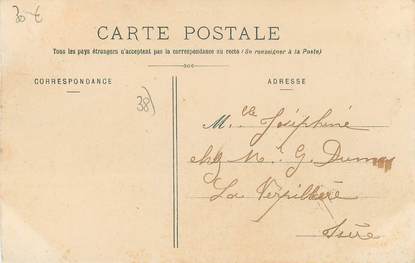 30 €
CARTE POSTALE
Tous les pays étrangers n'acceptent pas la correspondance au recto (Se renseigner à la Poste)
CORRESPONDANCE
ADRESSE
38)
Mlle Joséphine
chez Mr G. Dumas
La Verpillière
Isère